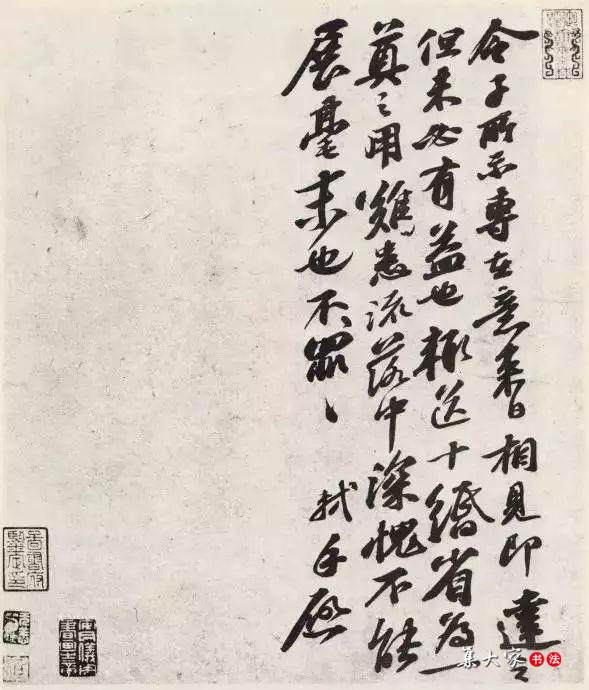 令子所示專在意來日相見即達之
但未必有益也輒送十緡省為一
奠之用難患流落中深愧不能
展毫末也不罪〻軾手啟
集大家书法